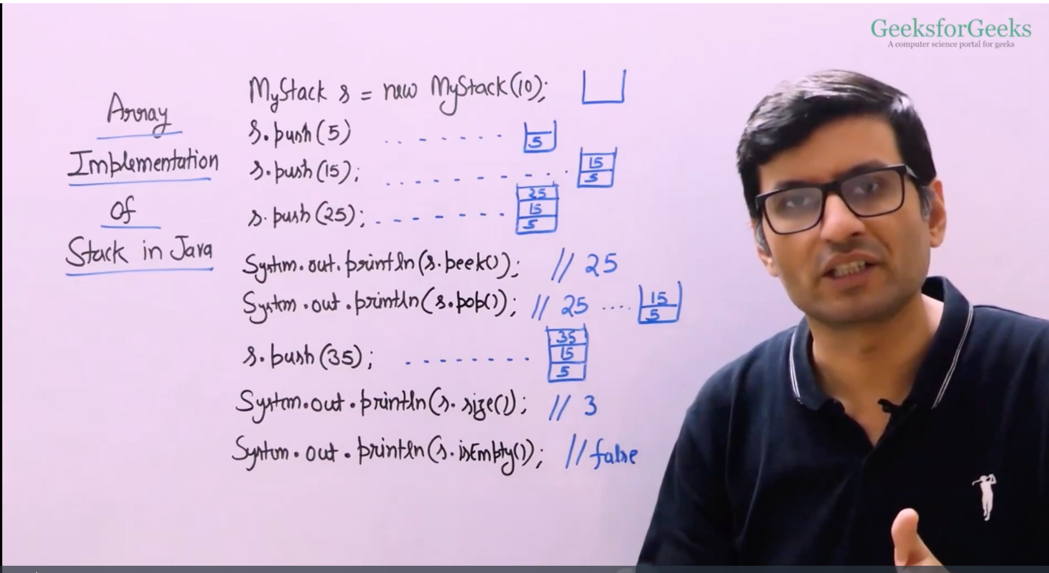 GeeksforGeeks
A computer science portal for geeks
Array
Implementation
Of
Stack in Java
MyStack s = new MyStack(10);
s.push(5) ........ 5
s.push(15); ........... 15 5
s.push(25); ........ 25 15 5
System.out.println(s.peek()); // 25
System.out.println(s.pop()); // 25 .... 15 5
s.push(35); ........ 35 15 5
System.out.println(s.size()); // 3
System.out.println(s.isEmpty()); // false